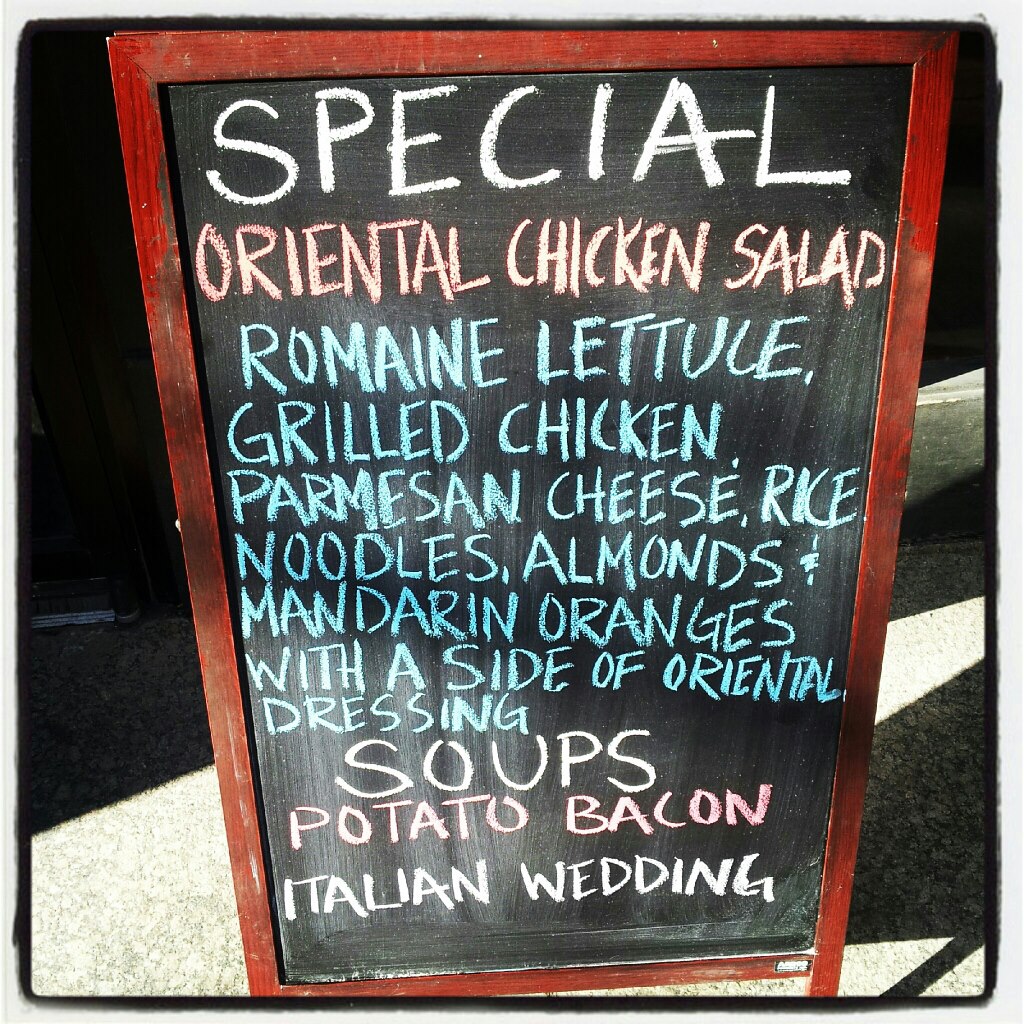 SPECIAL
ORIENTAL CHICKEN SALAD
ROMAINE LETTUCE,
GRILLED CHICKEN,
PARMESAN CHEESE, RICE
NOODLES, ALMONDS &
MANDARIN ORANGES
WITH A SIDE OF ORIENTAL
DRESSING
SOUPS
POTATO BACON
ITALIAN WEDDING